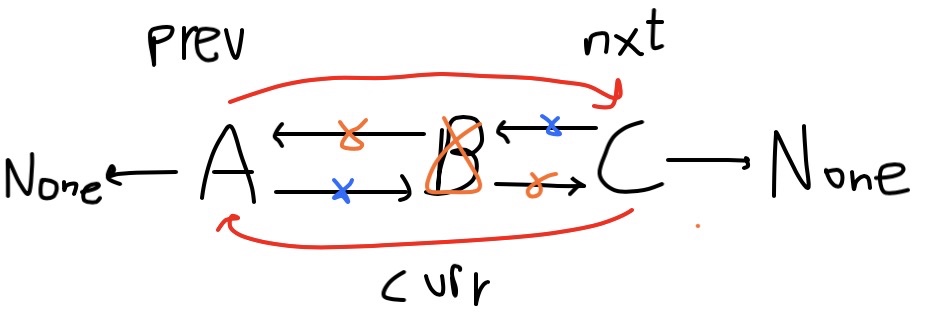 prev nxt
None A B C None
curr